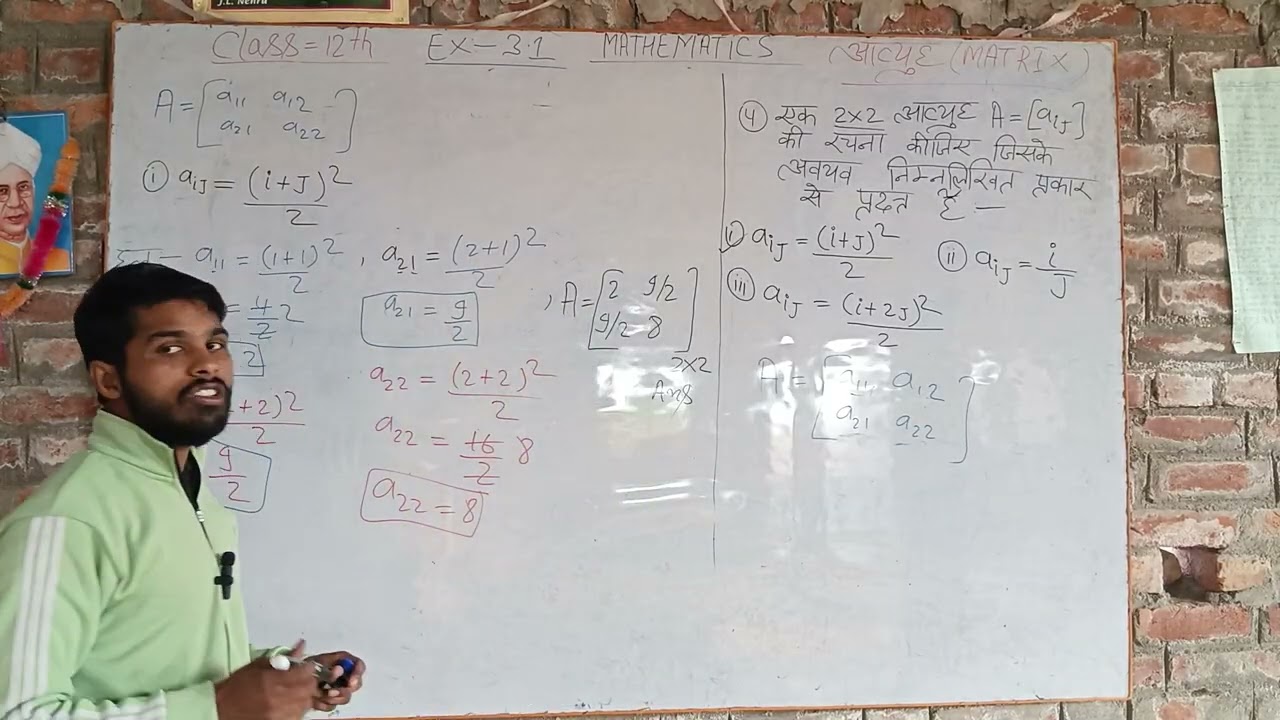 J.L. Nehru
Class=12th EX-3.1 MATHEMATICS आव्यूह (MATRIX)
A = [a11 a12
a21 a22]
(i) aiJ = (i+J)²/2
हल- a11 = (1+1)²/2 , a21 = (2+1)²/2
= 4/2 2
2
a21 = 9/2
+2)²/2
9/2
a22 = (2+2)²/2
a22 = 16/2 8
a22 = 8
, A = [2 9/2
9/2 8]
2×2
Ans
(4) एक 2×2 आव्यूह A = [aiJ]
की रचना कीजिए जिसके
अवयव निम्नलिखित प्रकार
से प्रदत्त है -
(i) aiJ = (i+J)²/2 (ii) aiJ = i/J
(iii) aiJ = (i+2J)²/2
A = [a11 a12
a21 a22]